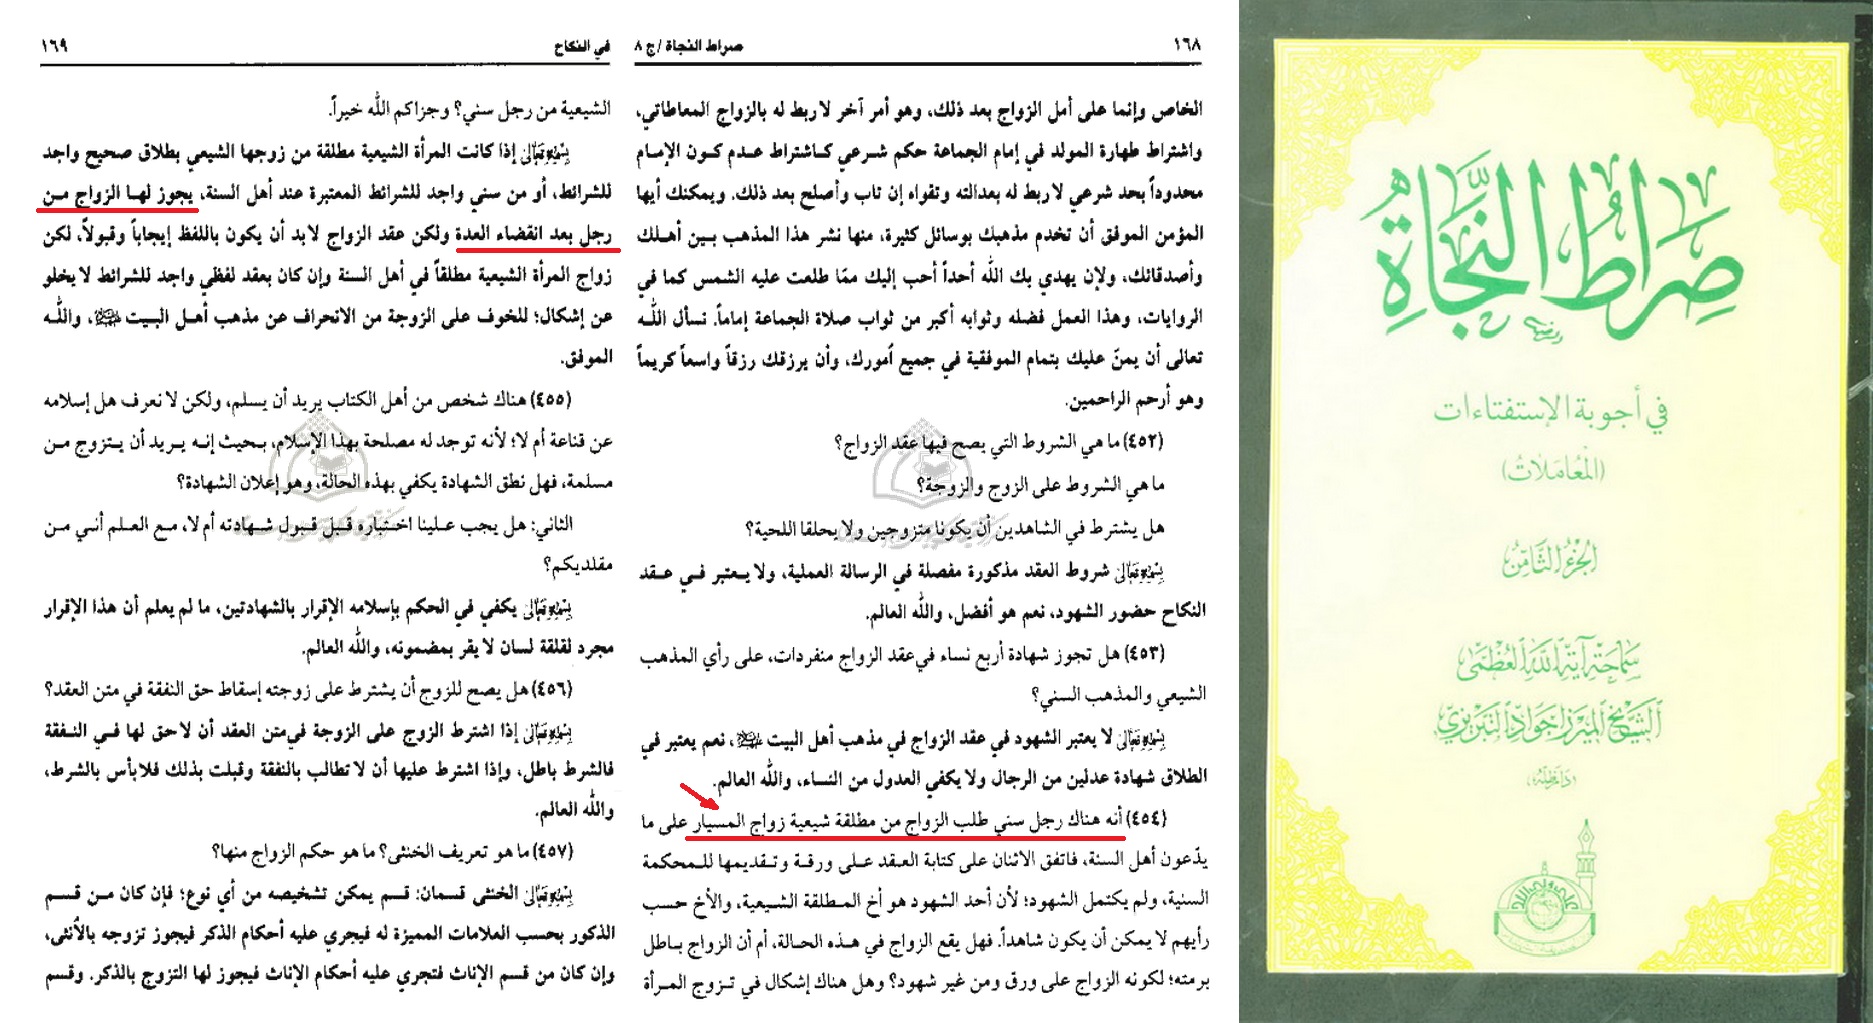 ١٦٨
صراط النجاة /ج ٨
الخاص وإنما على أمل الزواج بعد ذلك، وهو أمر آخر لا ربط له بالزواج المعاطاتي،
واشتراط طهارة المولد في إمام الجماعة حكم شرعي كاشتراط عدم كون الإمام
محدوداً بحد شرعي لا ربط له بعدالته وتقواه إن تاب وأصلح بعد ذلك. ويمكنك أيها
المؤمن الموفق أن تخدم مذهبك بوسائل كثيرة، منها نشر هذا المذهب بين أهلك
وأصدقائك، ولإن يهدي بك الله أحداً أحب إليك ممّا طلعت عليه الشمس كما في
الروايات، وهذا العمل فضله وثوابه أكبر من ثواب صلاة الجماعة إماماً. نسأل الله
تعالى أن يمنّ عليك بتمام الموفقية في جميع أمورك، وأن يرزقك رزقاً واسعاً كريماً
وهو أرحم الراحمين.
(٤٥٢) ما هي الشروط التي يصح فيها عقد الزواج؟
ما هي الشروط على الزوج والزوجة؟
هل يشترط في الشاهدين أن يكونا متزوجين ولا يحلقا اللحية؟
بسمه تعالى شروط العقد مذكورة مفصلة في الرسالة العملية، ولا يعتبر في عقد
النكاح حضور الشهود، نعم هو أفضل، والله العالم.
(٤٥٣) هل تجوز شهادة أربع نساء في عقد الزواج منفردات، على رأي المذهب
الشيعي والمذهب السني؟
بسمه تعالى لا يعتبر الشهود في عقد الزواج في مذهب أهل البيت، نعم يعتبر في
الطلاق شهادة عدلين من الرجال ولا يكفي العدول من النساء، والله العالم.
(٤٥٤) أنه هناك رجل سني طلب الزواج من مطلقة شيعية زواج المسيار على ما
يدّعون أهل السنة، فاتفق الاثنان على كتابة العقد على ورقة وتقديمها للمحكمة
السنية، ولم يكتمل الشهود؛ لأن أحد الشهود هو أخ المطلقة الشيعية، والأخ حسب
رأيهم لا يمكن أن يكون شاهداً. فهل يقع الزواج في هذه الحالة، أم أن الزواج باطل
برمته؛ لكونه الزواج على ورق ومن غير شهود؟ وهل هناك إشكال في تزوج المرأة
في النكاح
١٦٩
الشيعية من رجل سني؟ وجزاكم الله خيراً.
بسمه تعالى إذا كانت المرأة الشيعية مطلقة من زوجها الشيعي بطلاق صحيح واجد
للشرائط، أو من سني واجد للشرائط المعتبرة عند أهل السنة، يجوز لها الزواج من
رجل بعد انقضاء العدة ولكن عقد الزواج لابد أن يكون باللفظ إيجاباً وقبولاً، لكن
زواج المرأة الشيعية مطلقاً في أهل السنة وإن كان بعقد لفظي واجد للشرائط لا يخلو
عن إشكال؛ للخوف على الزوجة من الانحراف عن مذهب أهل البيت، والله
الموفق.
(٤٥٥) هناك شخص من أهل الكتاب يريد أن يسلم، ولكن لا نعرف هل إسلامه
عن قناعة أم لا؛ لأنه توجد له مصلحة بهذا الإسلام، بحيث إنه يريد أن يتزوج من
مسلمة، فهل نطق الشهادة يكفي بهذه الحالة، وهو إعلان الشهادة؟
الثاني: هل يجب علينا اختباره قبل قبول شهادته أم لا، مع العلم أني من
مقلديكم؟
بسمه تعالى يكفي في الحكم بإسلامه الإقرار بالشهادتين، ما لم يعلم أن هذا الإقرار
مجرد لقلقة لسان لا يقر بمضمونه، والله العالم.
(٤٥٦) هل يصح للزوج أن يشترط على زوجته إسقاط حق النفقة في متن العقد؟
بسمه تعالى إذا اشترط الزوج على الزوجة في متن العقد أن لا حق لها في النفقة
فالشرط باطل، وإذا اشترط عليها أن لا تطالب بالنفقة وقبلت بذلك فلا بأس بالشرط،
والله العالم.
(٤٥٧) ما هو تعريف الخنثى؟ ما هو حكم الزواج منها؟
بسمه تعالى الخنثى قسمان: قسم يمكن تشخيصه من أي نوع؛ فإن كان من قسم
الذكور بحسب العلامات المميزة له فيجري عليه أحكام الذكر فيجوز تزوجه بالأنثى،
وإن كان من قسم الإناث فتجري عليه أحكام الإناث فيجوز لها التزوج بالذكر. وقسم
صراط النجاة
في أجوبة الإستفتاءات
(المعاملات)
الجزء الثامن
سماحة آية الله العظمى
الشيخ الميرزا جواد التبريزي
(دام ظله)